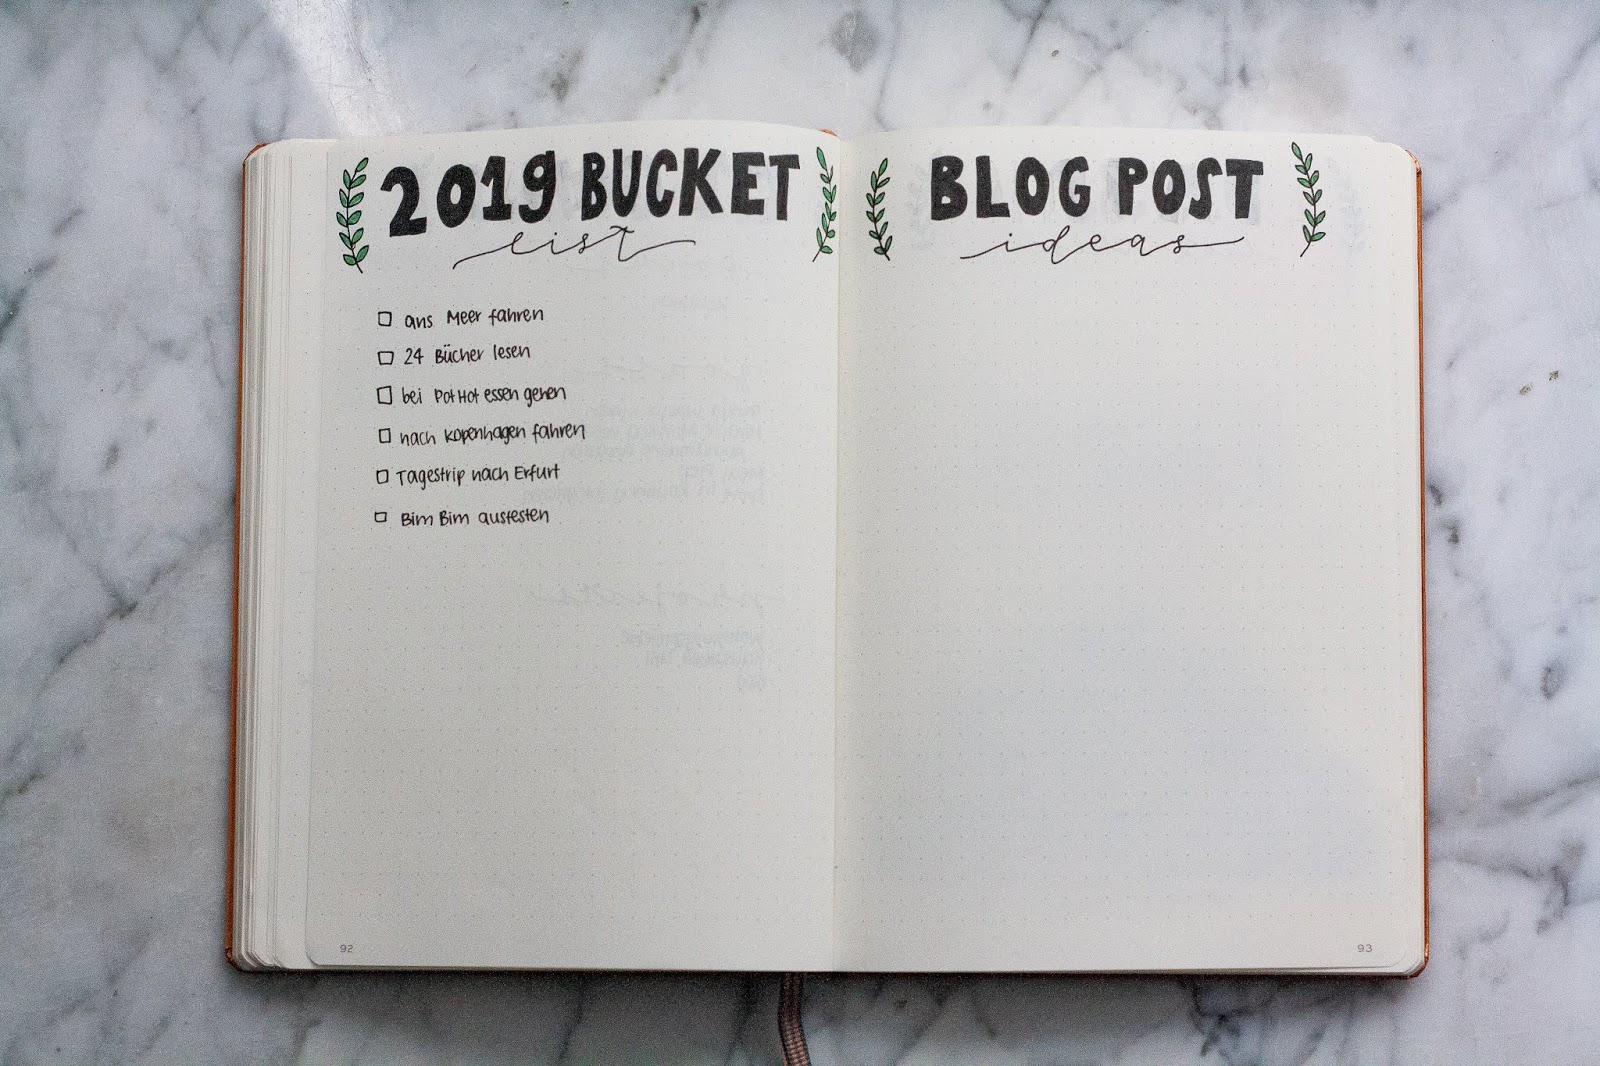 2019 BUCKET
list
ans Meer fahren
24 Bücher lesen
bei PotHot essen gehen
nach Kopenhagen fahren
Tagestrip nach Erfurt
BimBim austesten
92
BLOG POST
ideas
93